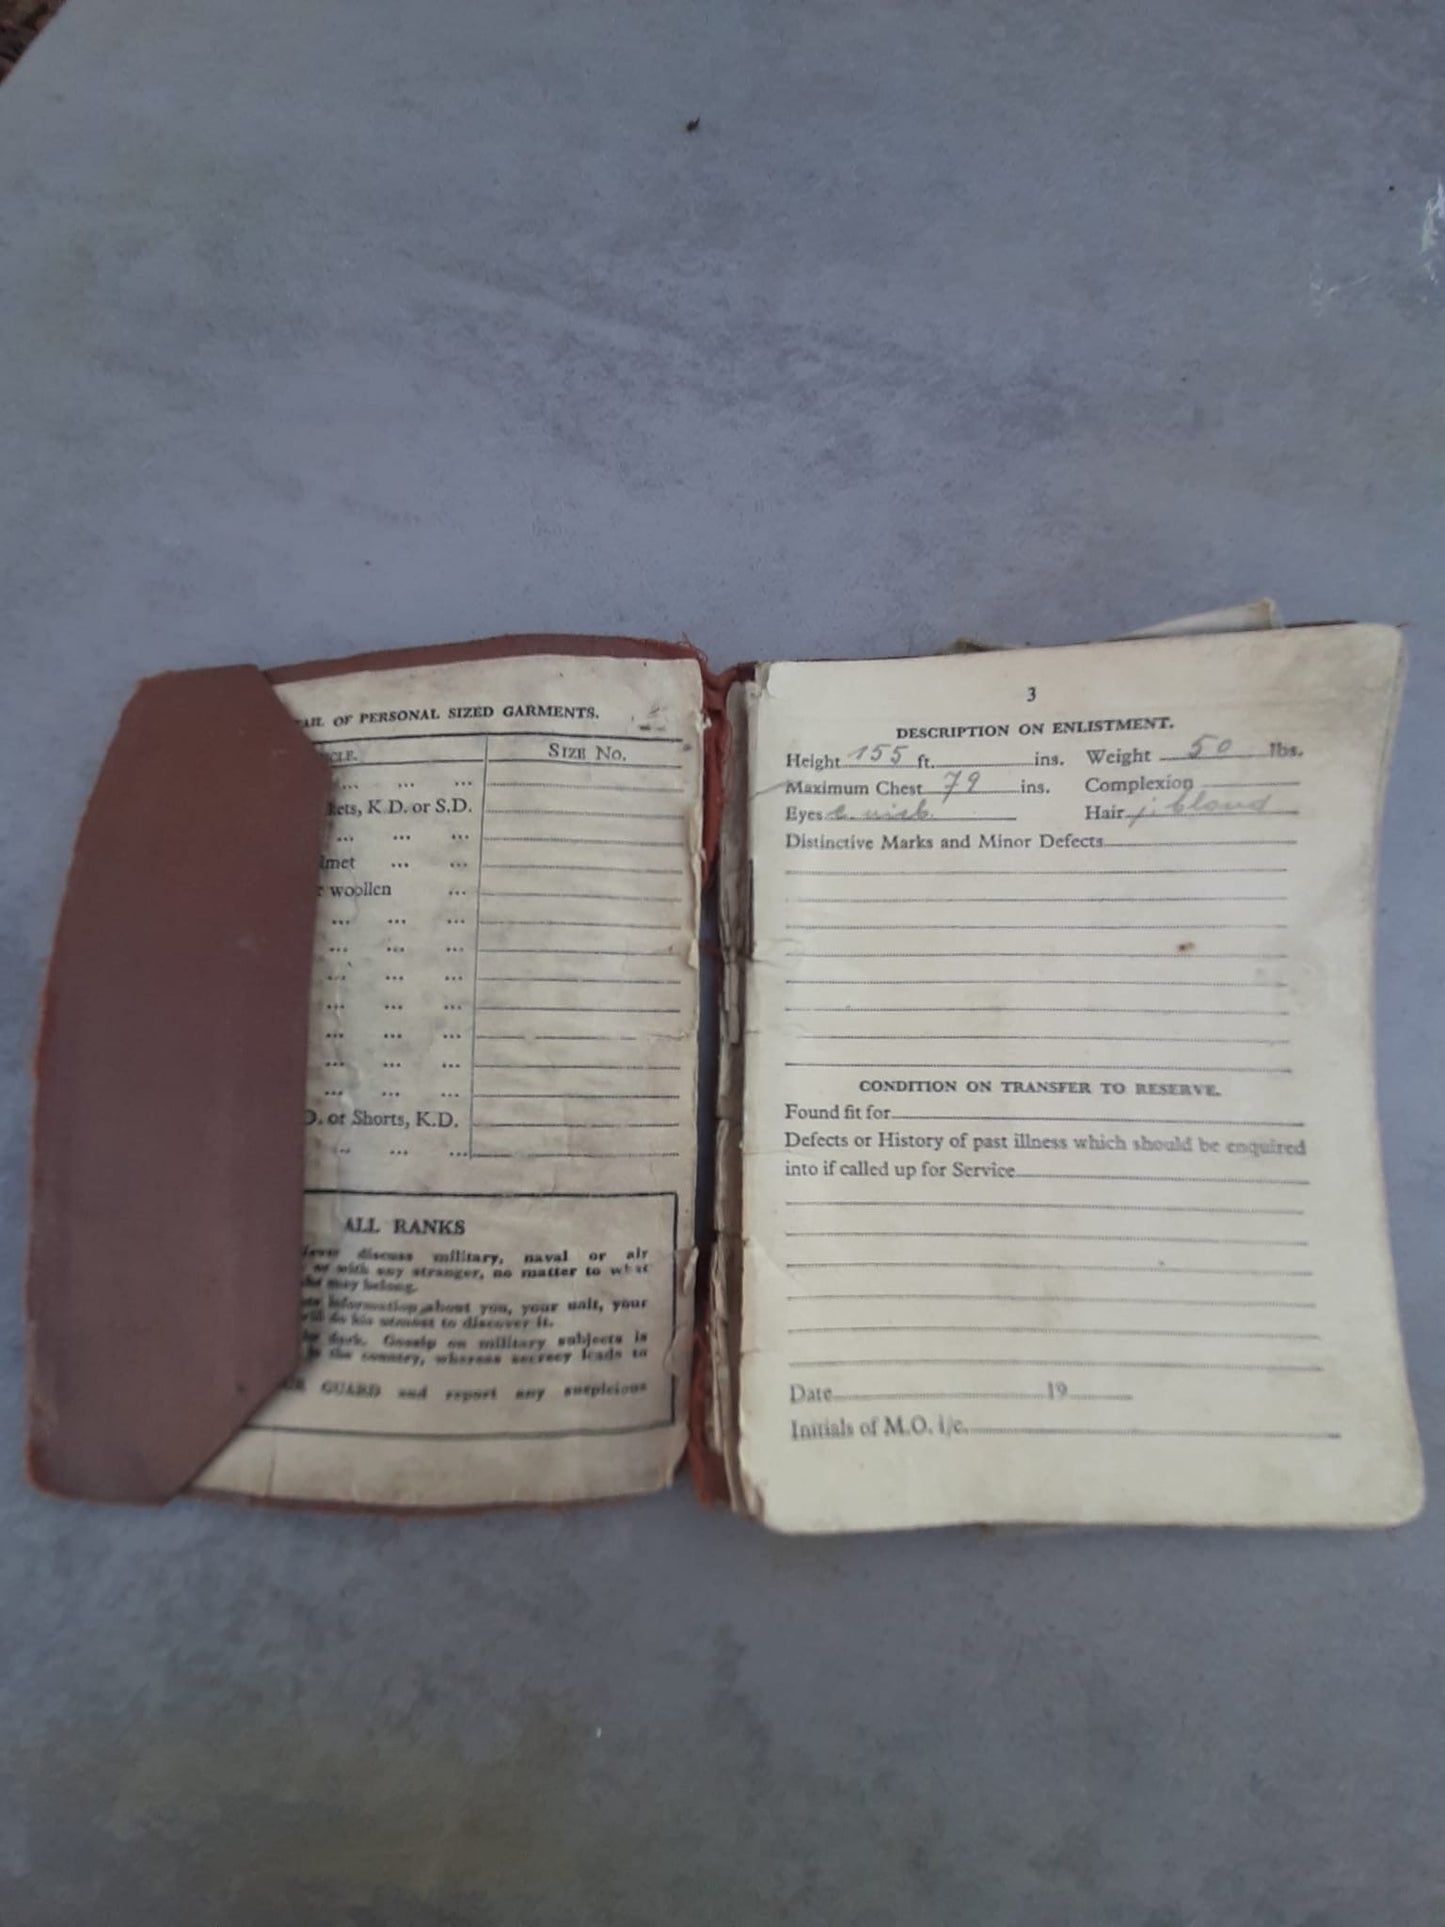 OF PERSONAL SIZED GARMENTS.
SIZE No.
... ... ...
K.D. or S.D.
... ... ...
... ...
woollen ...
... ... ...
... ... ...
... ... ...
... ... ...
... ... ...
... ... ...
... ... ...
or Shorts, K.D.
... ... ...
ALL RANKS
discuss military, naval or air
or with any stranger, no matter to what
may belong.
information about you, your unit, your
will do his utmost to discover it.
dark. Gossip on military subjects is
to the country, whereas secrecy leads to
GUARD and report any suspicious
3
DESCRIPTION ON ENLISTMENT.
Height 155 ft. ins. Weight 50 lbs.
Maximum Chest 79 ins. Complexion
Eyes Hair j. blond
Distinctive Marks and Minor Defects
CONDITION ON TRANSFER TO RESERVE.
Found fit for
Defects or History of past illness which should be enquired
into if called up for Service
Date 19
Initials of M.O. i/c.